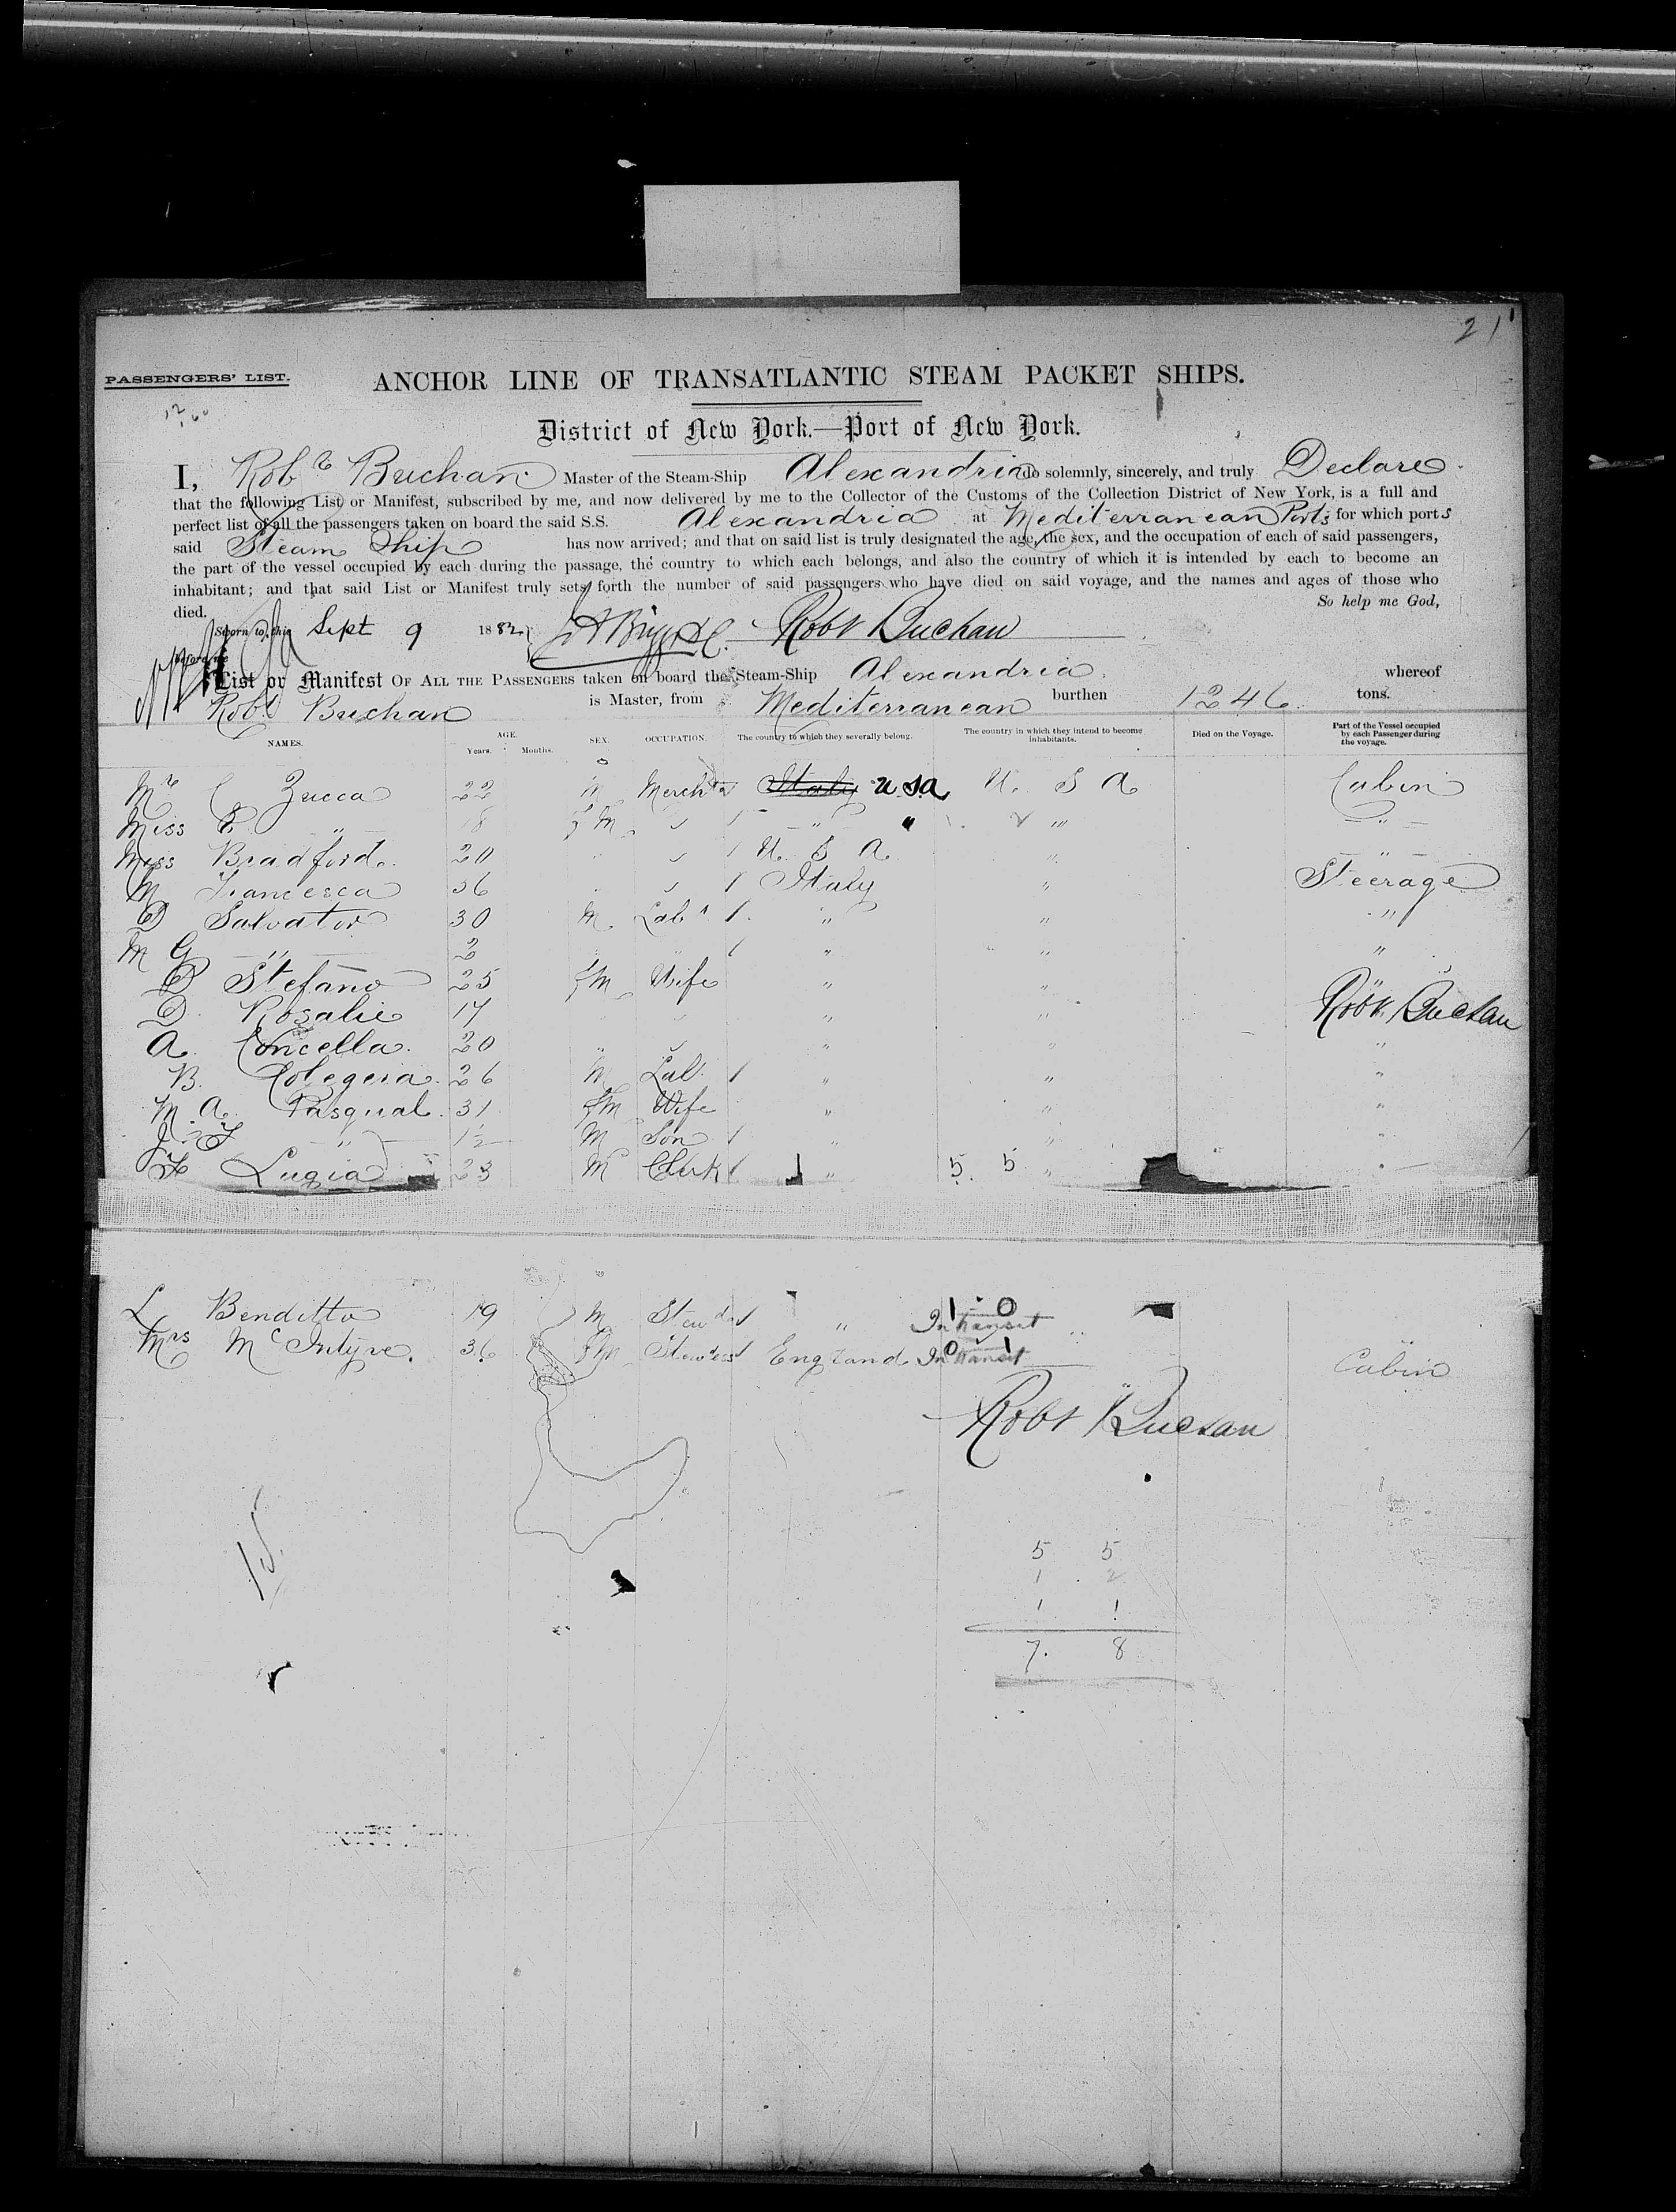 21
PASSENGERS' LIST.
ANCHOR LINE OF TRANSATLANTIC STEAM PACKET SHIPS.
District of New York.—Port of New York.
I, Robt Buchan Master of the Steam-Ship Alexandria do solemnly, sincerely, and truly Declare
that the following List or Manifest, subscribed by me, and now delivered by me to the Collector of the Customs of the Collection District of New York, is a full and
perfect list of all the passengers taken on board the said S.S. Alexandria at Mediterranean Ports for which ports
said Steam Ship has now arrived; and that on said list is truly designated the age, the sex, and the occupation of each of said passengers,
the part of the vessel occupied by each during the passage, the country to which each belongs, and also the country of which it is intended by each to become an
inhabitant; and that said List or Manifest truly sets forth the number of said passengers who have died on said voyage, and the names and ages of those who
died. So help me God,
Sworn to this Sept 9 1882 Robt Buchan
before me
List or Manifest OF ALL THE PASSENGERS taken on board the Steam-Ship Alexandria whereof
Robt Buchan is Master, from Mediterranean burthen 1246 tons.
NAMES. AGE. Years. Months. SEX. OCCUPATION. The country to which they severally belong. The country in which they intend to become inhabitants. Died on the Voyage. Part of the Vessel occupied by each Passenger during the voyage.
Mr C Zucca 22 M Mercht Italy U.S.A. U. S A Cabin
Miss E. " 18 Fm " " " "
Miss Bradford 20 U. S A " "
M Francesca 36 Italy " Steerage
D Salvator 30 M. Labr " " "
M G " 2 " " " "
P Stefano 25 Fm Wife " " "
D. Rosalie 17 " " Robt Buchan
A. Concella. 20 " " " "
B. Colegera. 26 M Lab. " " "
M. A. Pasqual. 31 Fm Wife " " "
J. F " 1½ M Son " " "
F Lugia 23 M Clerk " 5. 5 " "
L Benditto 19 M Stewd " In transit 1 0
Mrs McIntyre. 36 Fm Stewdess England In transit 0 1 Cabin
Robt Buchan
5 5
1 2
1 1
7. 8
15